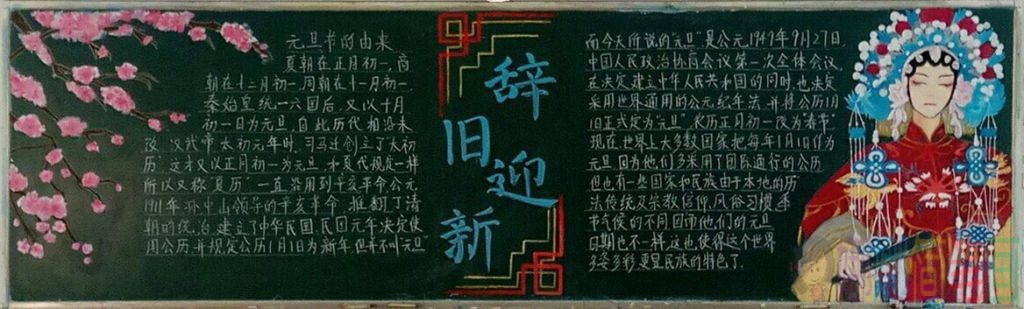 元旦节的由来
夏朝在正月初一,商
朝在十二月初一,周朝在十一月初一,
秦始皇统一六国后,又以十月
初一日为元旦,自此历代相沿未
改,汉武帝太初元年时,司马迁创立了"太初
历"这才又以正月初一为元旦,和夏代规定一样
所以又称"夏历"一直沿用到辛亥革命公元
1911年孙中山领导的辛亥革命,推翻了清
朝的统治,建立了中华民国民国元年决定使
用公历,并规定公历1月1日为新年,但并不叫元旦
辞
旧
迎
新
而今天所说的"元旦"是公元1949年9月27日,
中国人民政治协商会议第一次全体会议,
在决定建立中华人民共和国的同时,也决定
采用世界通用的公元纪年法,并将公历1月
1日正式定为"元旦"农历正月初一改为"春节"
现在世界上大多数国家把每年1月1日作为
元旦因为他们多采用了国际通行的公历
但也有些国家和民族由于本地的历
法传统及宗教信仰,风俗习惯,季
节气候的不同因而他们的元旦
日期也不一样,这也使得这个世界
多姿多彩,更显民族的特色了.